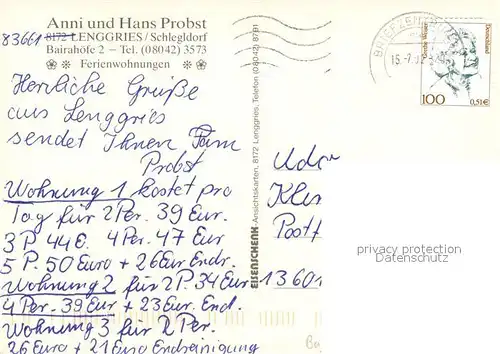 Anni und Hans Probst
83661 8172 LENGGRIES / Schlegldorf
Bairahöfe 2 – Tel. (08042) 3573
Ferienwohnungen
Herrliche Grüße
aus Lenggries
sendet Ihnen Fam
Probst
Wohnung 1 kostet pro
Tag für 2 Per. 39 Eur.
3 P. 44 E. 4 Per. 47 Eur
5 P. 50 Euro + 26 Eur Endr.
Wohnung 2 für 2 P. 34 Eur
4 Per. 39 Eur + 23 Eur. End.
Wohnung 3 für 2 Per.
26 Euro + 21 Euro Endreinigung
EISENSCHENK Ansichtskarten, 8172 Lenggries, Telefon (08042) 8791
BRIEFZENTRUM
15.-7.
Deutschland
100 0,51€
Udo
Postf
13601
privacy protection
Datenschutz